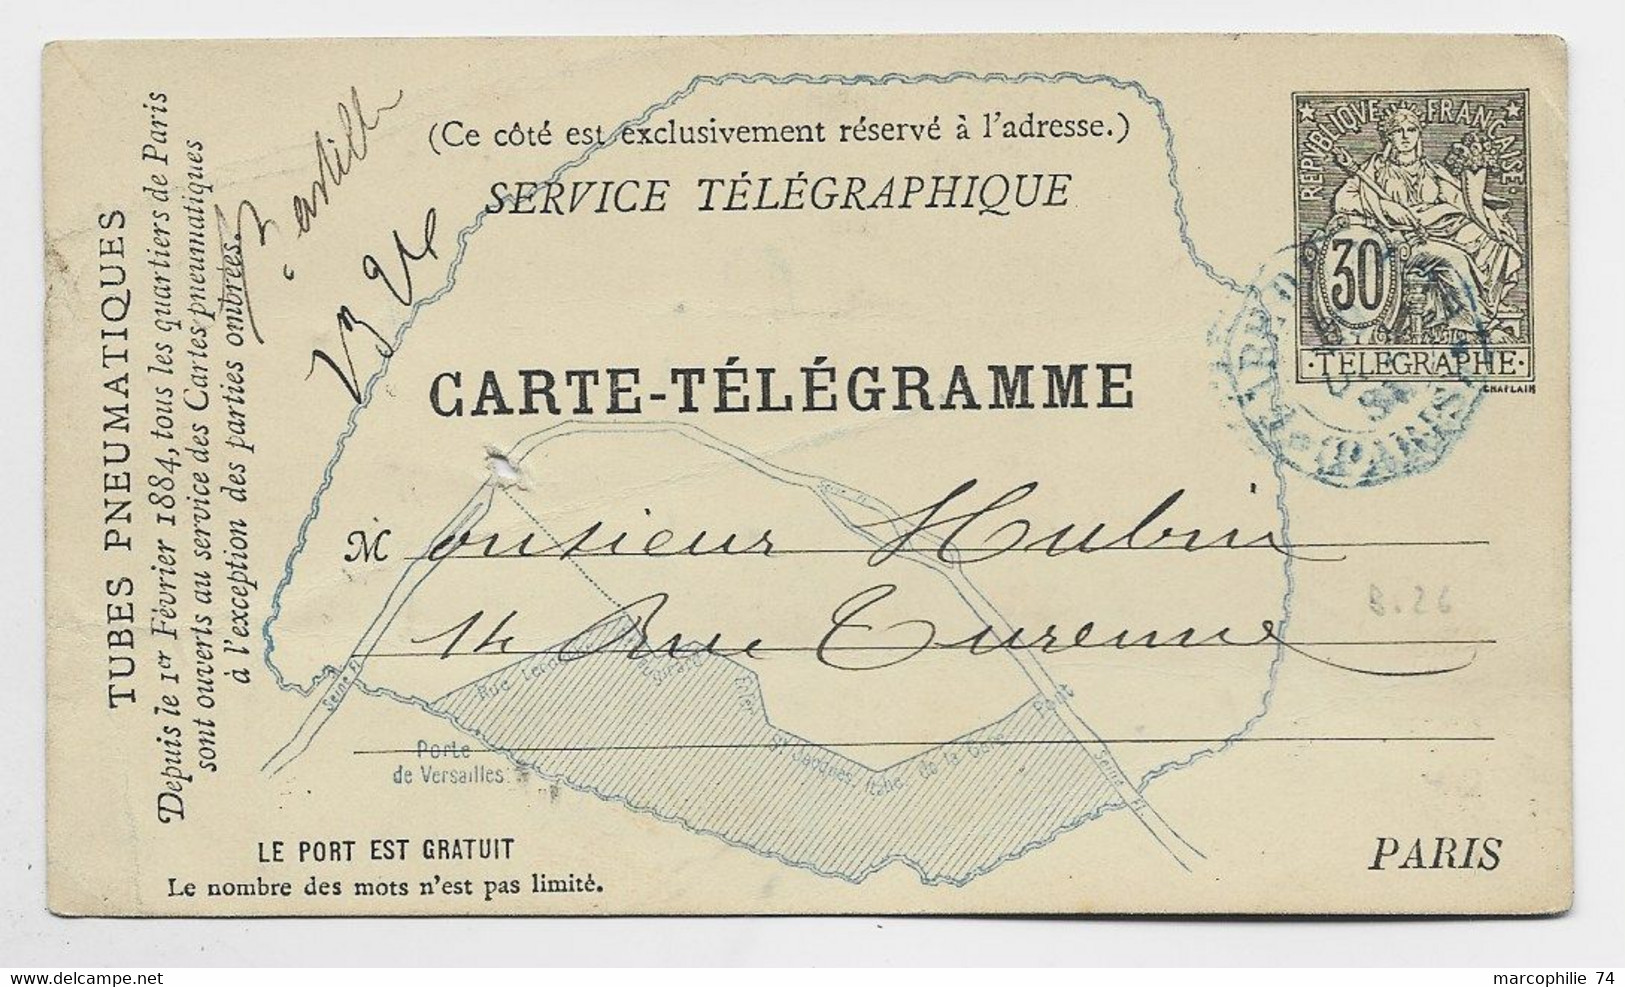 (Ce côté est exclusivement réservé à l'adresse.)
SERVICE TÉLÉGRAPHIQUE
CARTE-TÉLÉGRAMME
REPUBLIQUE FRANÇAISE
30
TELEGRAPHE
CHAPLAIN
PARIS
TUBES PNEUMATIQUES
Depuis le 1er Février 1884, tous les quartiers de Paris
sont ouverts au service des Cartes pneumatiques
à l'exception des parties ombrées.
Monsieur Hubin
14 Rue Turenne
B.26
Seine Fl.
Rue Lecourbe
Porte
de Versailles
St Jacques, Italie, de la Gare
Pont
Seine Fl.
PARIS
LE PORT EST GRATUIT
Le nombre des mots n'est pas limité.
marcophilie 74